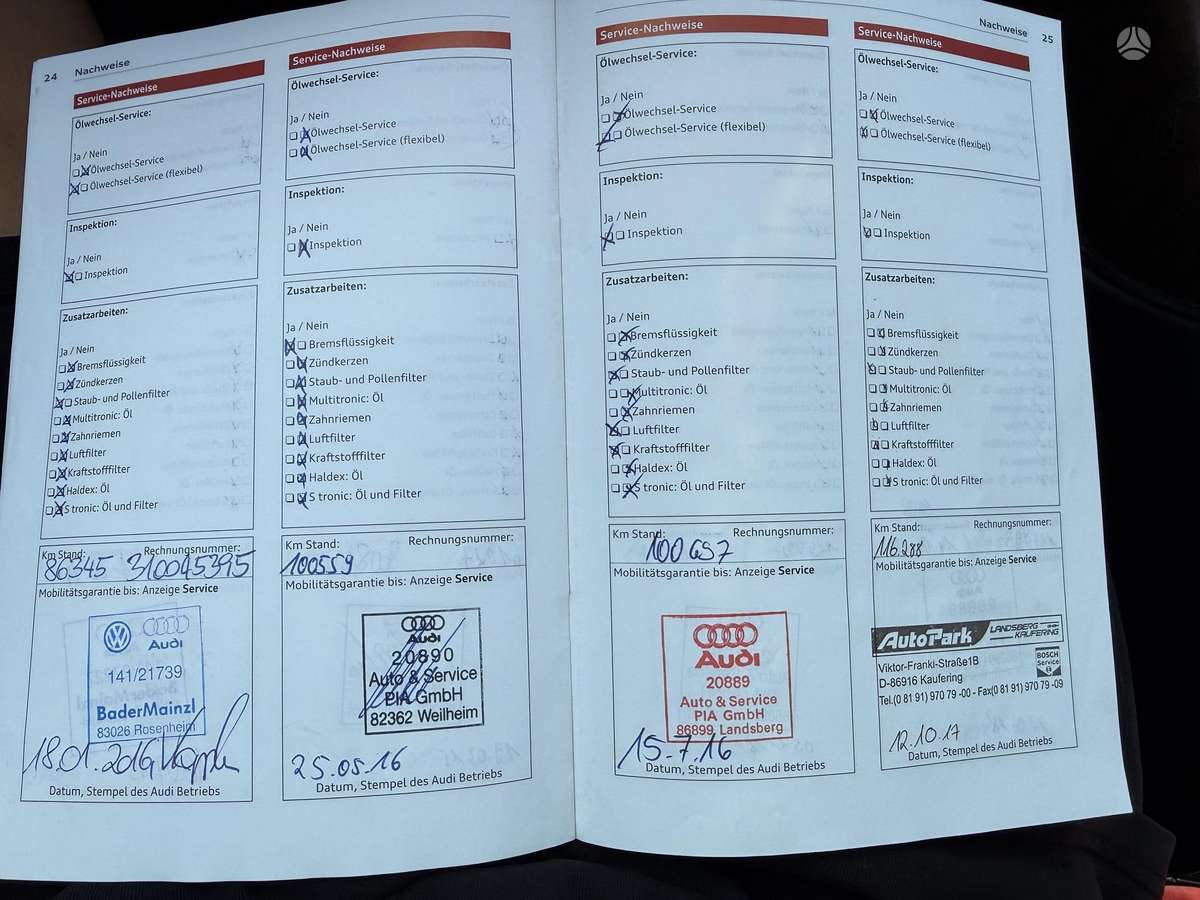 24 Nachweise
Service-Nachweise
Ölwechsel-Service:
Ja / Nein
Ölwechsel-Service
Ölwechsel-Service (flexibel)
Inspektion:
Ja / Nein
Inspektion
Zusatzarbeiten:
Ja / Nein
Bremsflüssigkeit
Zündkerzen
Staub- und Pollenfilter
Multitronic: Öl
Zahnriemen
Luftfilter
Kraftstofffilter
Haldex: Öl
S tronic: Öl und Filter
Km Stand: Rechnungsnummer:
86345 310045395
Mobilitätsgarantie bis: Anzeige Service
Audi
141/21739
BaderMainzl
83026 Rosenheim
18.01.2016
Datum, Stempel des Audi Betriebs
Service-Nachweise
Ölwechsel-Service:
Ja / Nein
Ölwechsel-Service
Ölwechsel-Service (flexibel)
Inspektion:
Ja / Nein
Inspektion
Zusatzarbeiten:
Ja / Nein
Bremsflüssigkeit
Zündkerzen
Staub- und Pollenfilter
Multitronic: Öl
Zahnriemen
Luftfilter
Kraftstofffilter
Haldex: Öl
S tronic: Öl und Filter
Km Stand: Rechnungsnummer:
100559
Mobilitätsgarantie bis: Anzeige Service
Audi
20890
Auto & Service
PIA GmbH
82362 Weilheim
25.05.16
Datum, Stempel des Audi Betriebs
Nachweise 25
Service-Nachweise
Ölwechsel-Service:
Ja / Nein
Ölwechsel-Service
Ölwechsel-Service (flexibel)
Inspektion:
Ja / Nein
Inspektion
Zusatzarbeiten:
Ja / Nein
Bremsflüssigkeit
Zündkerzen
Staub- und Pollenfilter
Multitronic: Öl
Zahnriemen
Luftfilter
Kraftstofffilter
Haldex: Öl
S tronic: Öl und Filter
Km Stand: Rechnungsnummer:
100657
Mobilitätsgarantie bis: Anzeige Service
Audi
20889
Auto & Service
PIA GmbH
86899, Landsberg
15.7.16
Datum, Stempel des Audi Betriebs
Service-Nachweise
Ölwechsel-Service:
Ja / Nein
Ölwechsel-Service
Ölwechsel-Service (flexibel)
Inspektion:
Ja / Nein
Inspektion
Zusatzarbeiten:
Ja / Nein
Bremsflüssigkeit
Zündkerzen
Staub- und Pollenfilter
Multitronic: Öl
Zahnriemen
Luftfilter
Kraftstofffilter
Haldex: Öl
S tronic: Öl und Filter
Km Stand: Rechnungsnummer:
116.288
Mobilitätsgarantie bis: Anzeige Service
AutoPark LANDSBERG
KAUFERING
Viktor-Frankl-Straße1B
D-86916 Kaufering
Tel.(0 81 91) 970 79 -00 - Fax(0 81 91) 970 79 -09
BOSCH
Service
12.10.17
Datum, Stempel des Audi Betriebs